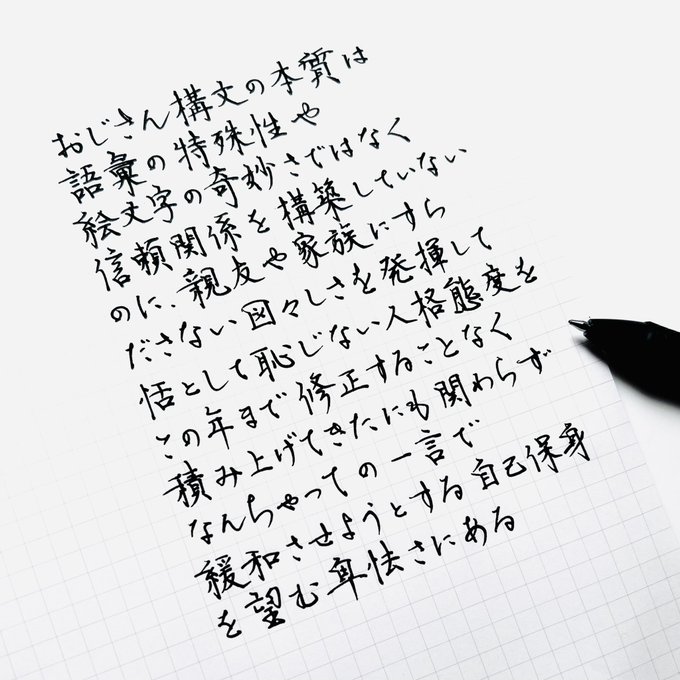 おじさん構文の本質は
語彙の特殊性や
絵文字の奇妙さではなく
信頼関係を構築していない
のに、親友や家族にすら
ださない図々しさを発揮して
恬として恥じない人格態度を
この年まで修正することなく
積み上げてきたにも関わらず
なんちゃっての一言で
緩和させようとする自己保身
を望む卑怯さにある